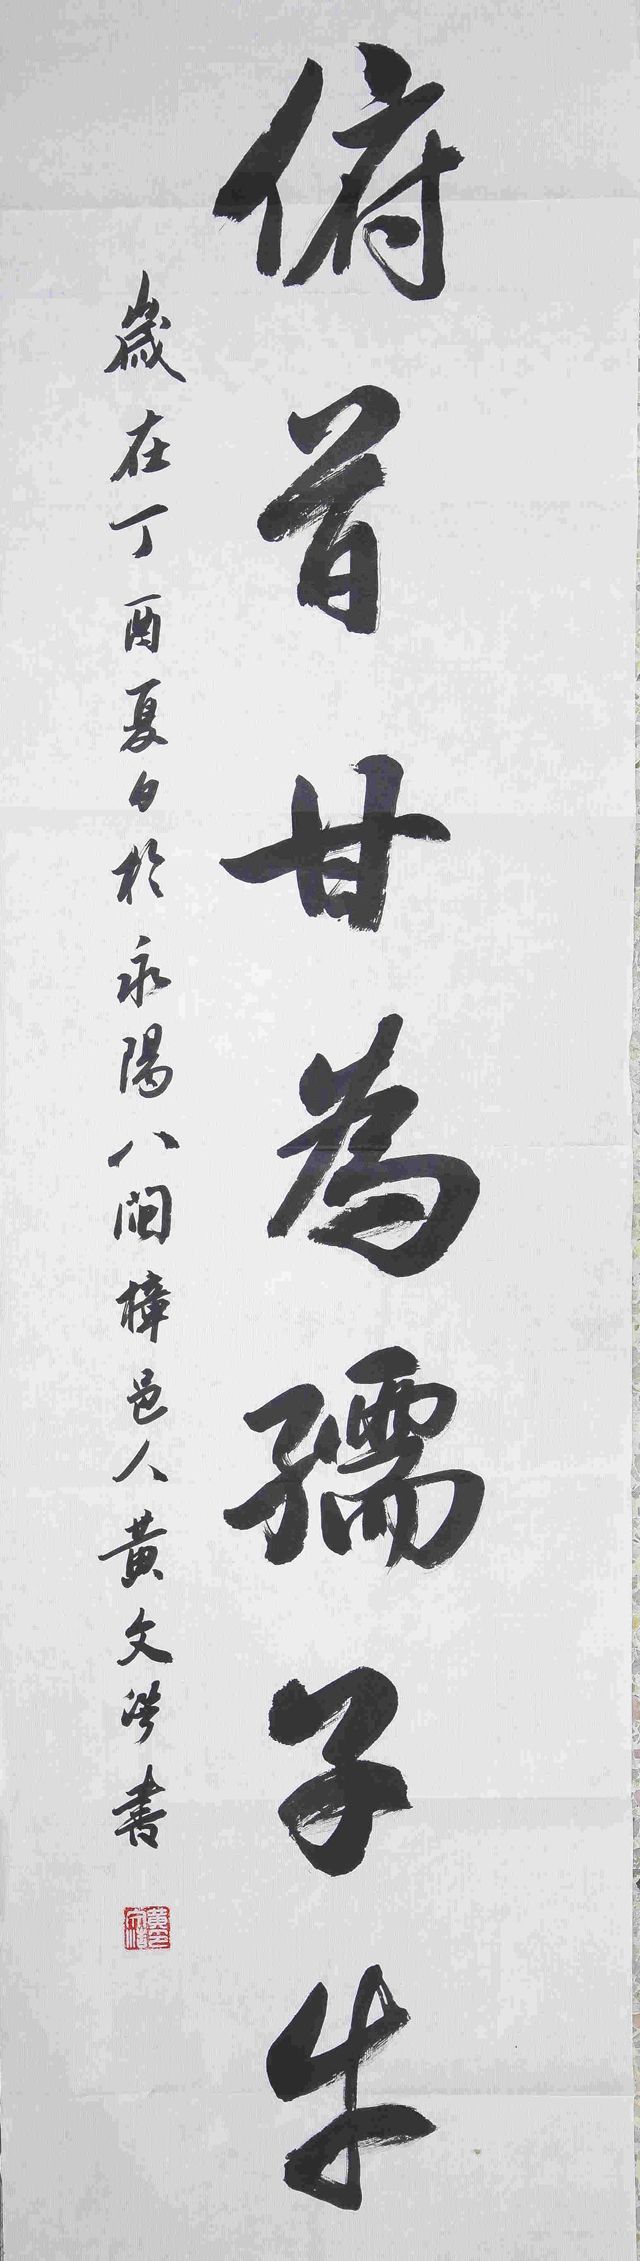 俯首甘為孺子牛
歲在丁酉夏日於永陽八閩樟邑人黃文書